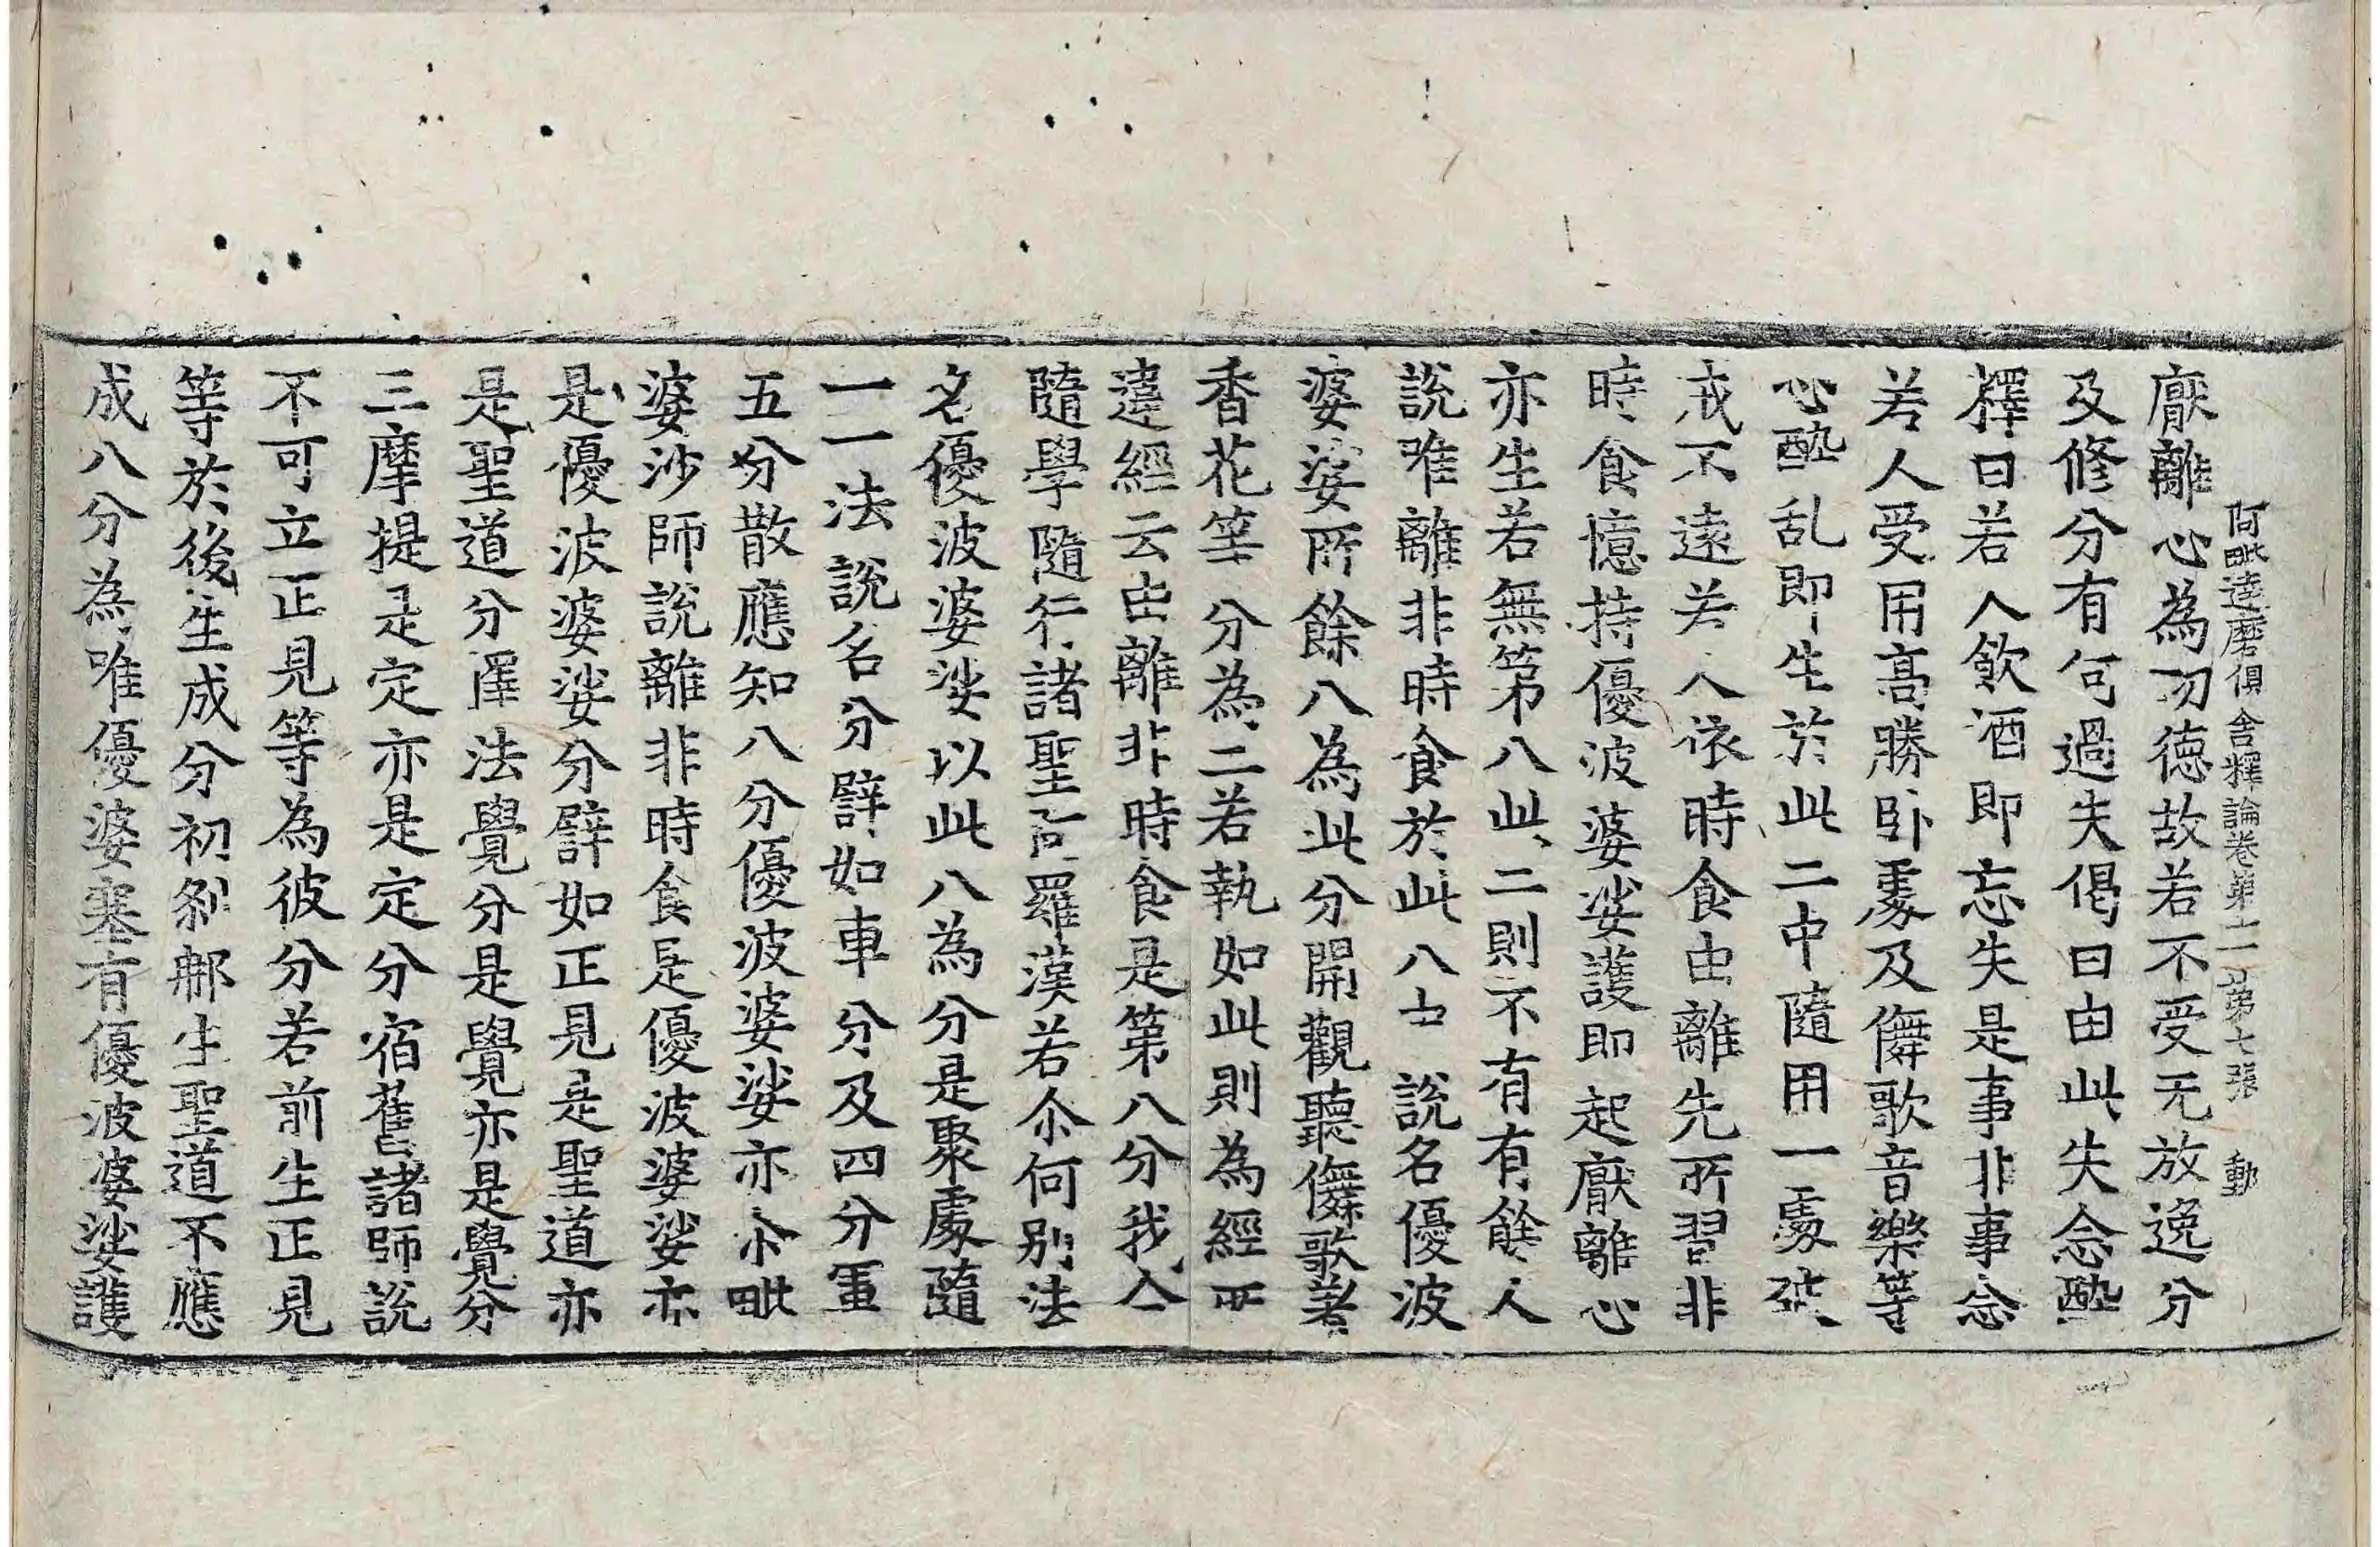 阿毗達磨俱舍釋論卷第十一 第七張 動
厭離心為功德故若不受无放逸分
及修分有何過失偈曰由此失念醉
釋曰若人飲酒即忘失是事非事念
若人受用高勝卧處及儛歌音樂等
心醉乱即生於此二中隨用一處破
戒不遠若人依時食由離先所習非
時食憶持優波婆娑護即起厭離心
亦生若無第八此二則不有有餘人
說唯離非時食於此八士說名優波
婆娑所餘八為此分開觀聽儛歌著
香花等分為二若執如此則為經所
違經云由離非時食是第八分我今
隨學隨行諸聖阿羅漢若尒何別法
名優波婆娑以此八為分是聚處隨
一一法說名分譬如車分及四分軍
五分散應知八分優波婆娑亦尒毗
婆沙師說離非時食是優波婆娑亦
是優波婆娑分譬如正見是聖道亦
是聖道分擇法覺分是覺亦是覺分
三摩提是定亦是定分宿舊諸師說
不可立正見等為彼分若前生正見
等於後生成分初剎那生聖道不應
成八分為唯優婆塞有優波婆娑護